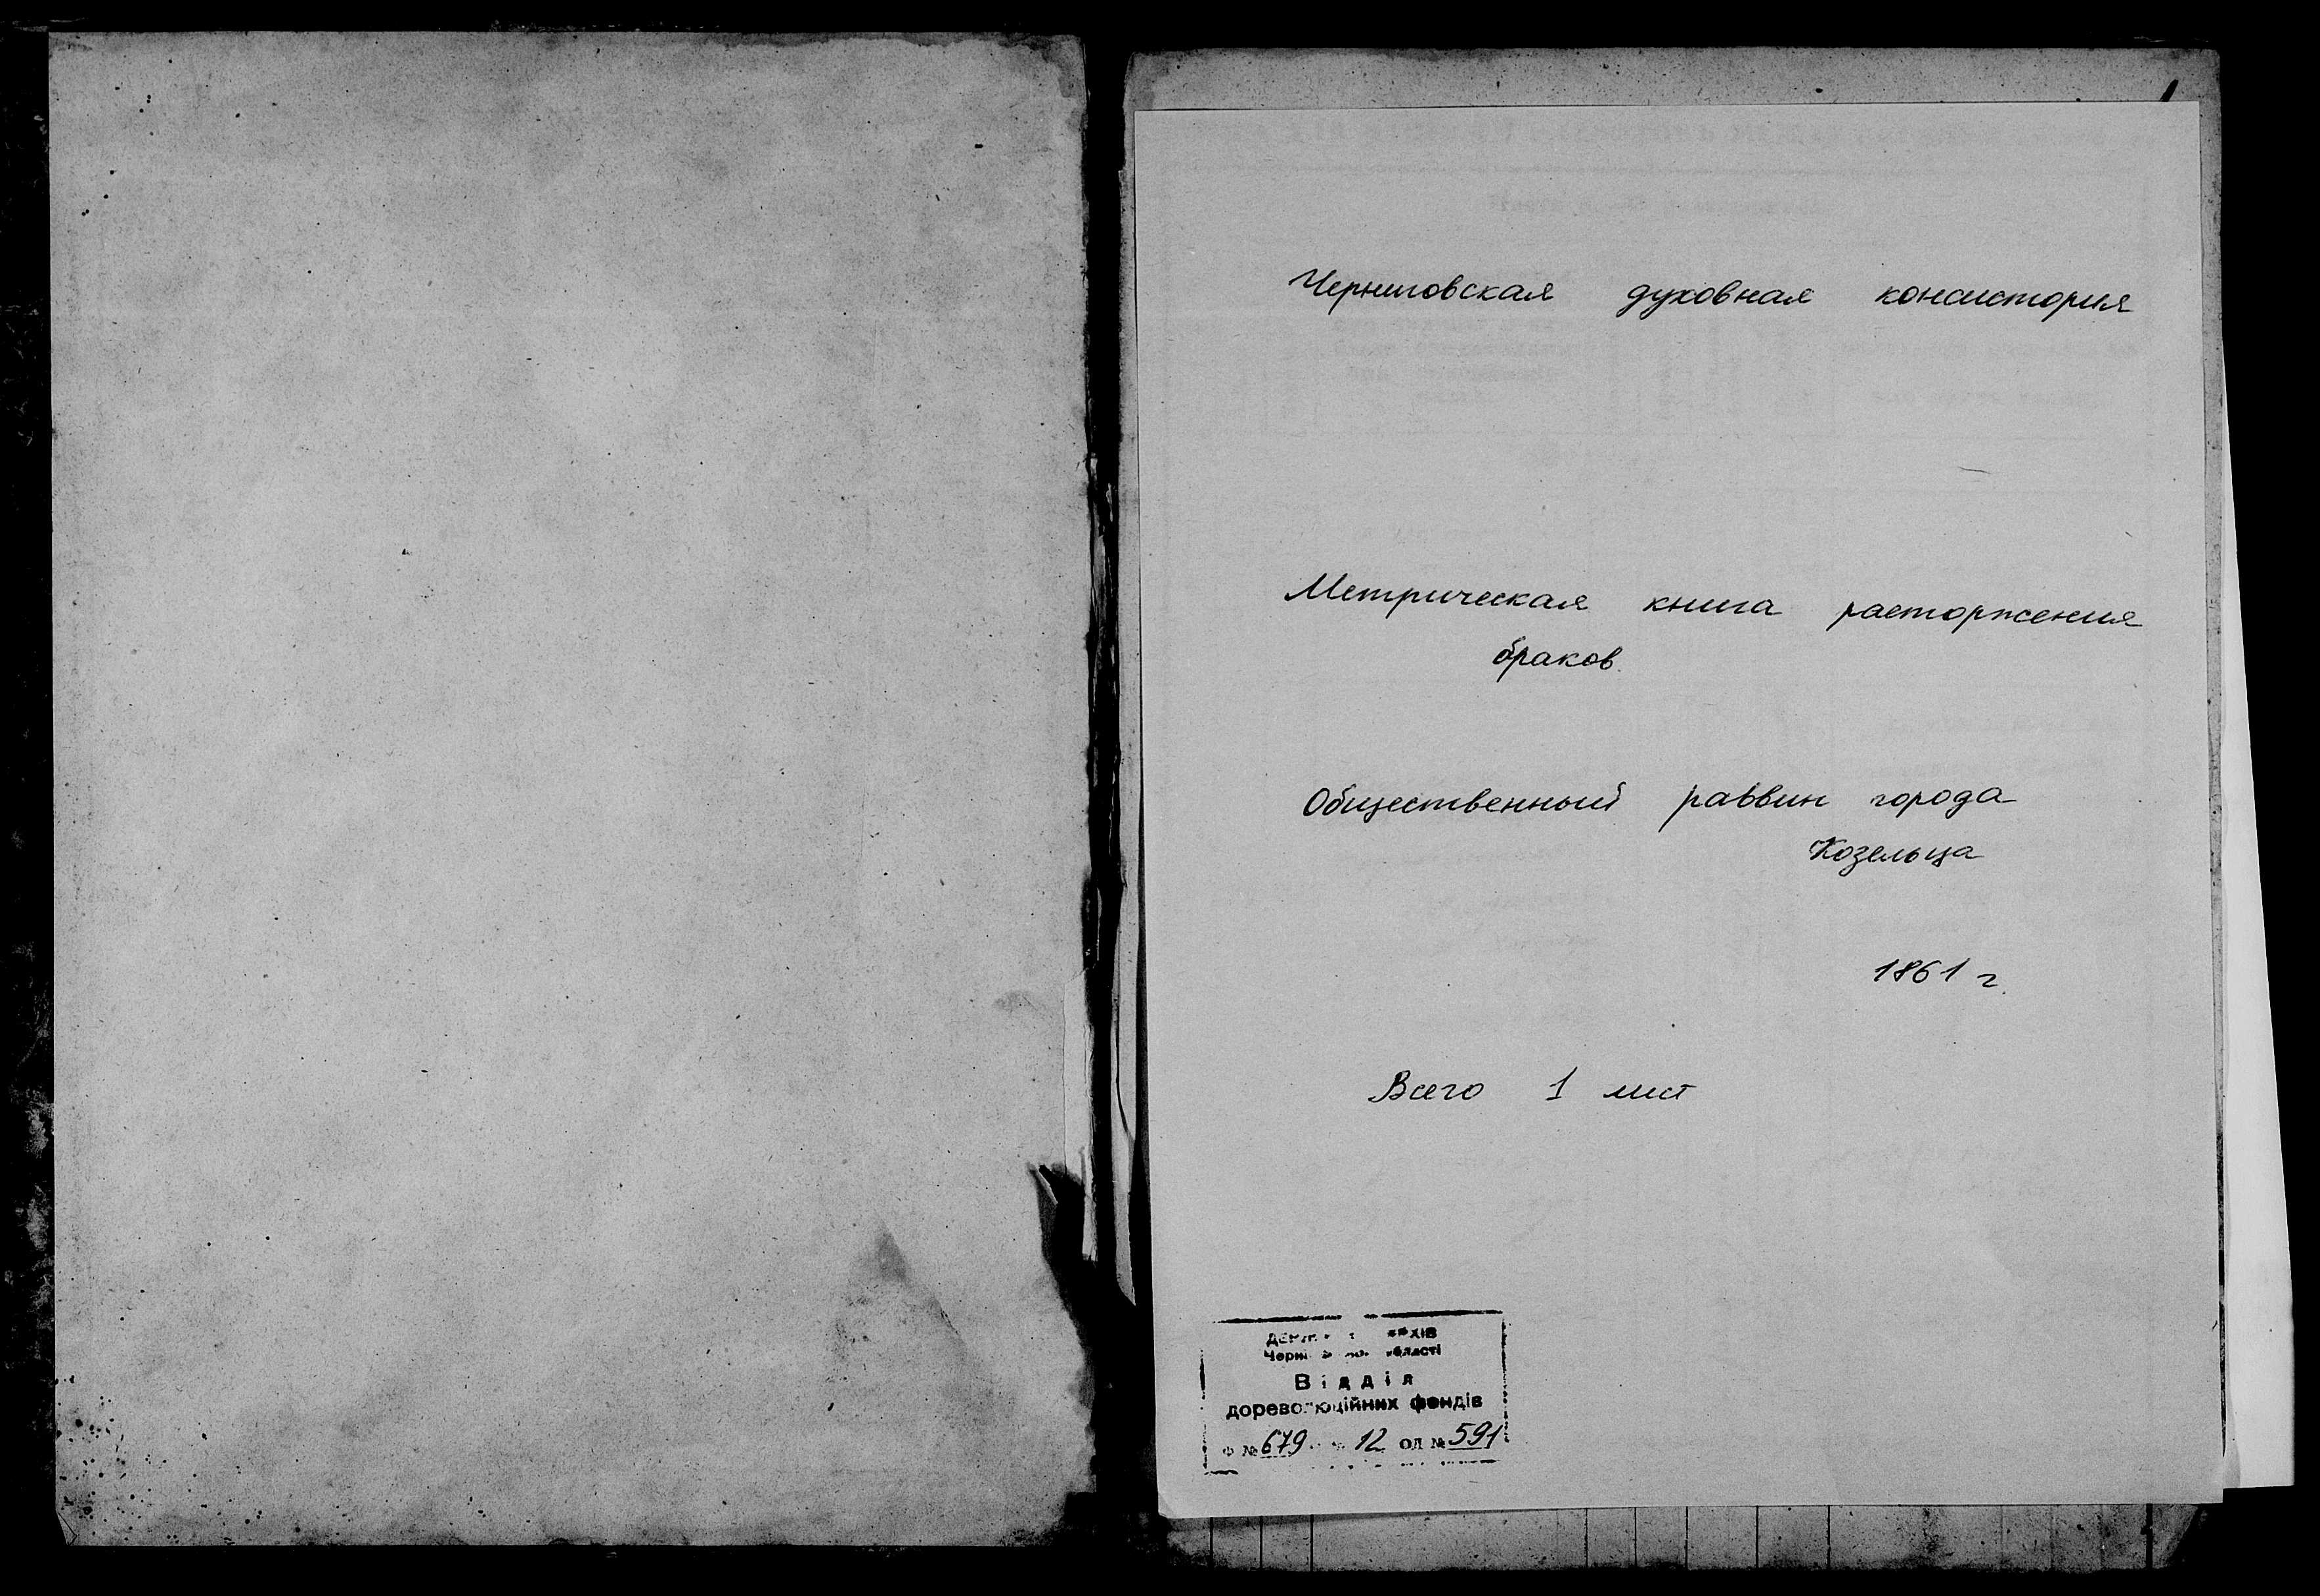 Черниговская духовная консистория
Метрическая книга расторжения
браков.
Общественный раввин города
Козельца
1861 г.
Всего 1 лист
області
Відділ
дореволюційних фондів
Ф № 679 12 од № 591